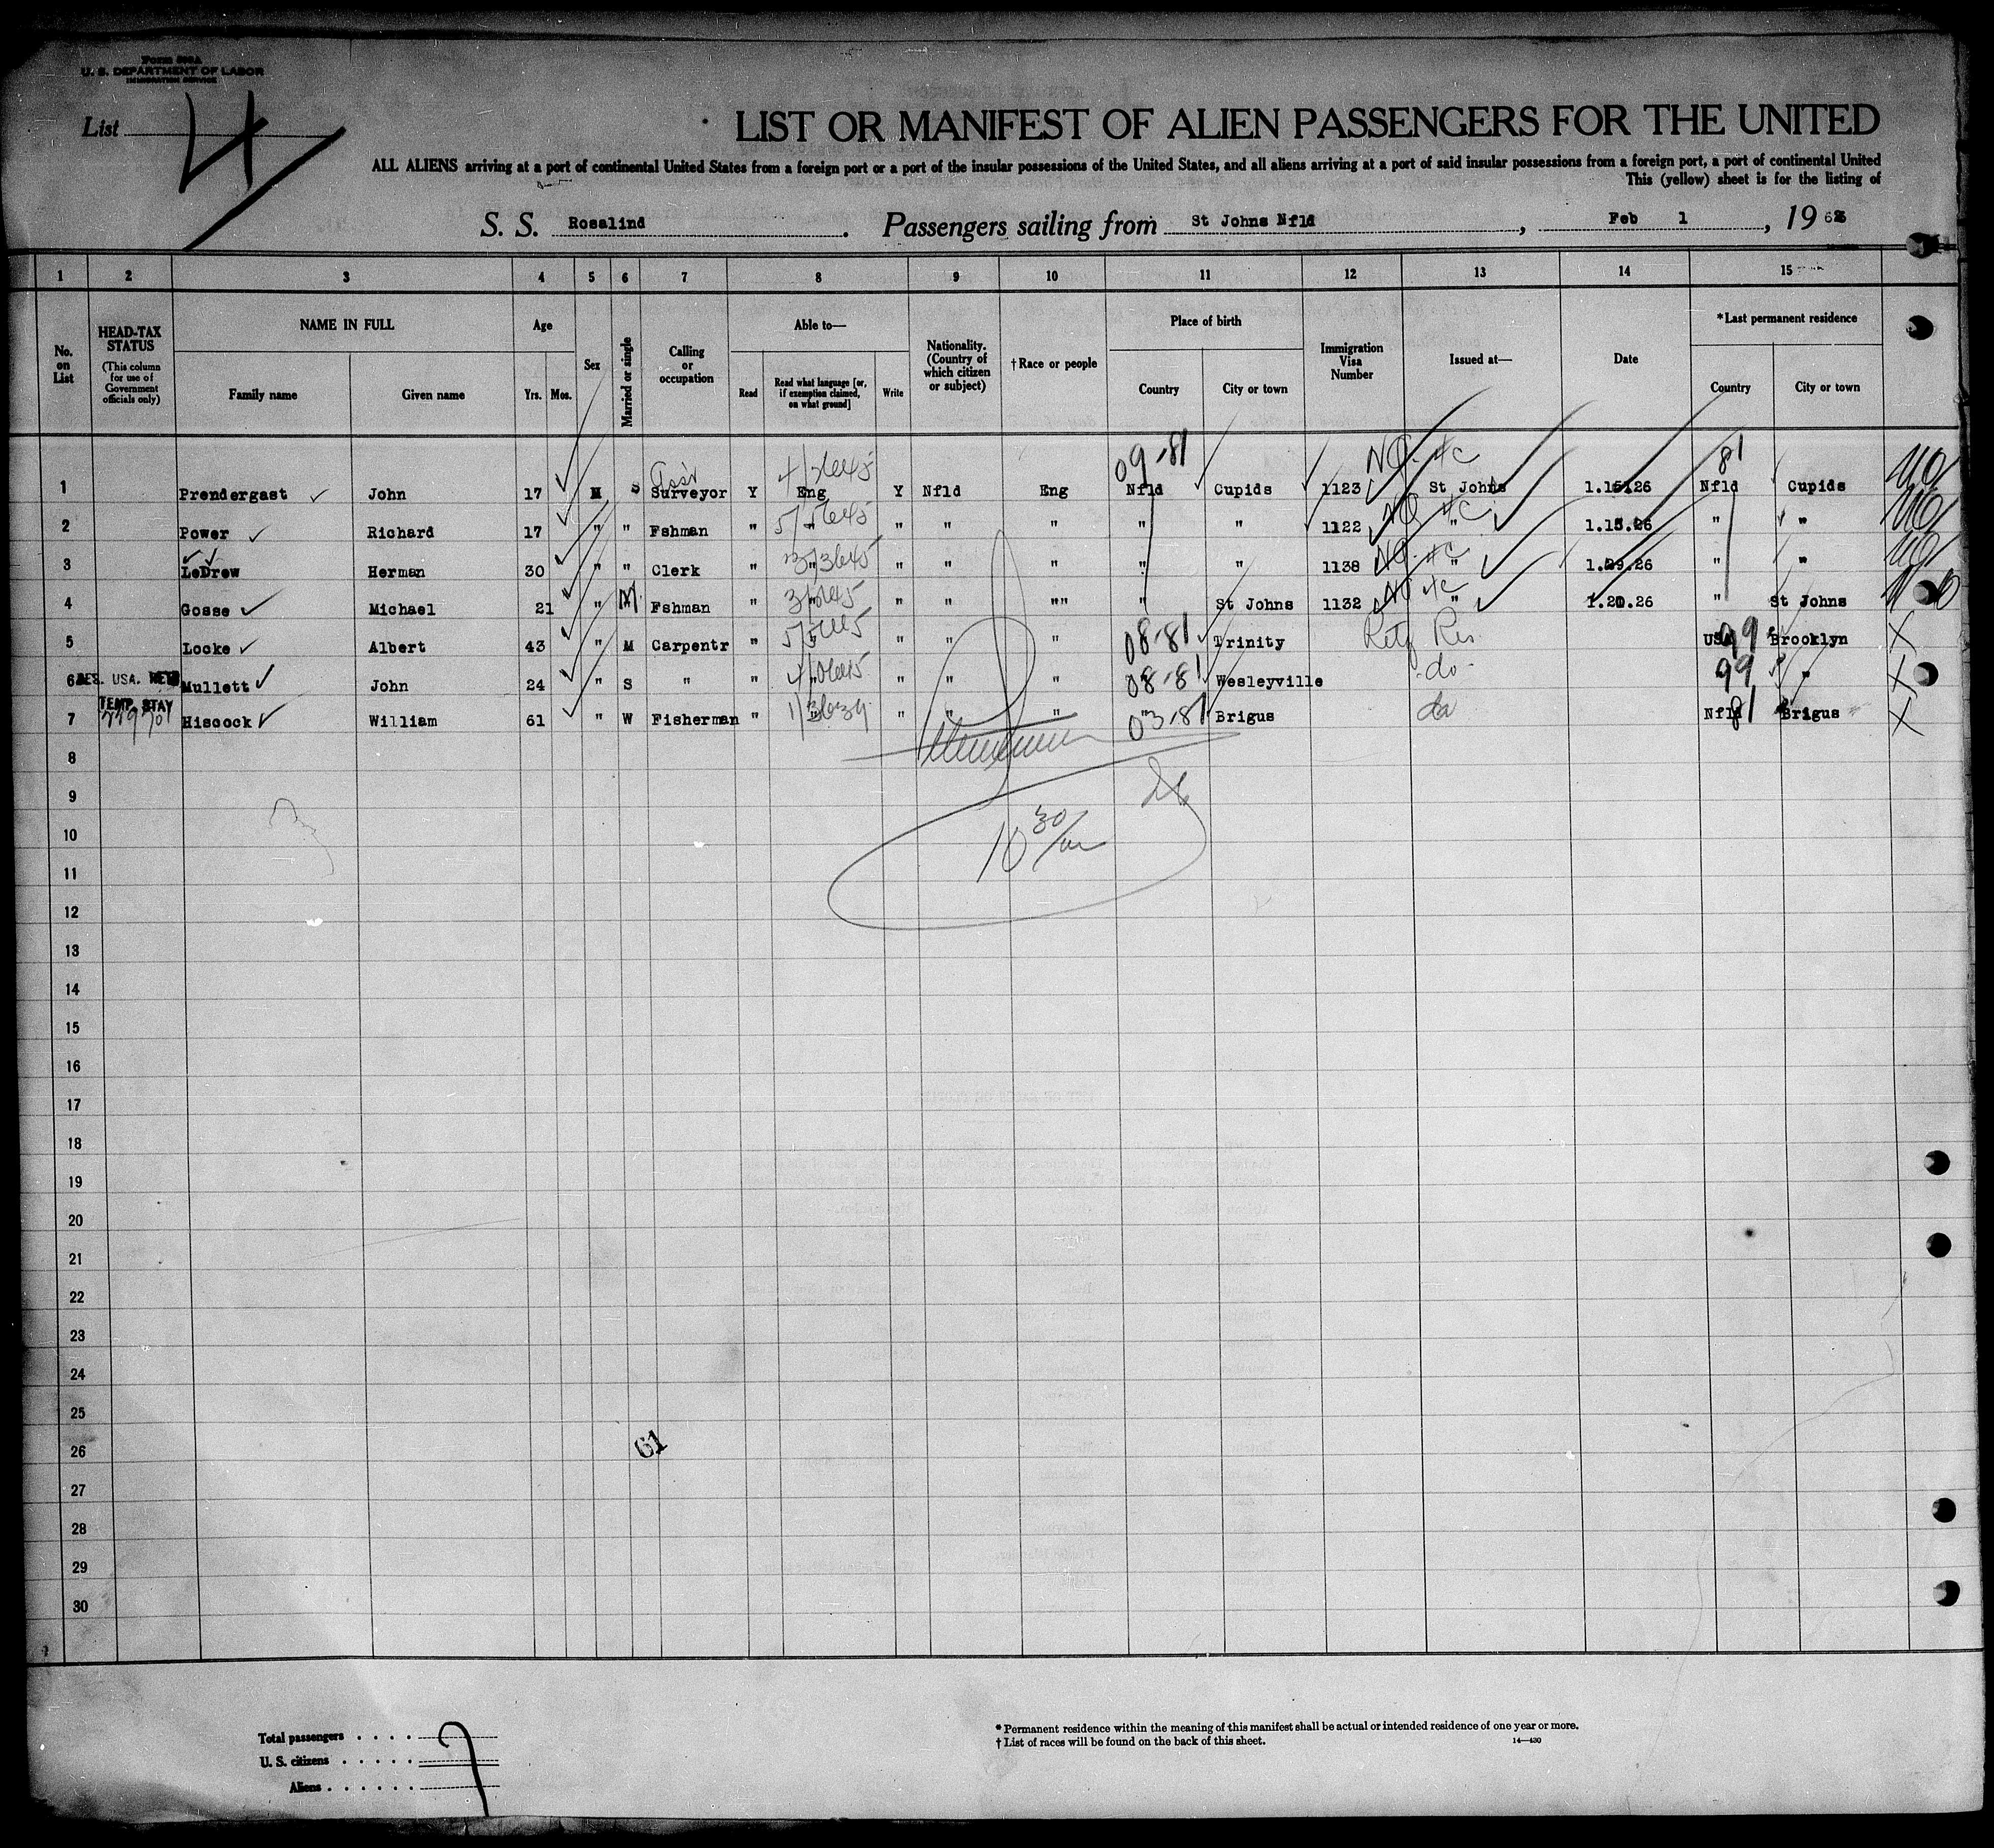 Form 500A
U. S. DEPARTMENT OF LABOR
IMMIGRATION SERVICE
List 4
LIST OR MANIFEST OF ALIEN PASSENGERS FOR THE UNITED
ALL ALIENS arriving at a port of continental United States from a foreign port or a port of the insular possessions of the United States, and all aliens arriving at a port of said insular possessions from a foreign port, a port of continental United
This (yellow) sheet is for the listing of
S. S. Rosalind. Passengers sailing from St Johns Nfld, Feb 1, 19
1 2 3 4 5 6 7 8 9 10 11 12 13 14 15
No. on List
HEAD-TAX STATUS
(This column for use of Government officials only)
NAME IN FULL
Family name
Given name
Age
Yrs.
Mos.
Sex
Married or single
Calling or occupation
Able to—
Read
Read what language [or, if exemption claimed, on what ground]
Write
Nationality. (Country of which citizen or subject)
†Race or people
Place of birth
Country
City or town
Immigration Visa Number
Issued at—
Date
*Last permanent residence
Country
City or town
09-81 NQ 4c 81
1 Prendergast John 17 M S Ass'r Surveyor Y Eng Y Nfld Eng Nfld Cupids 1123 St Johns 1.15.26 Nfld Cupids
2 Power Richard 17 " " Fshman " " " " " " " 1122 NQ 4c " 1.15.26 " "
3 LeDrew Herman 30 " " Clerk " " " " " " " 1138 NQ 4c " 1.29.26 " "
4 Gosse Michael 21 " M Fshman " " " " "" " St Johns 1132 NQ 4c " 1.20.26 " St Johns
5 Locke Albert 43 " M Carpentr " " " " " 08-81 Trinity Retg Res. USA 99 Brooklyn X
6 RES. USA. Mullett John 24 " S " " " " " " 08-81 Wesleyville do 99 " X
TEMP. STAY
7 Hiscock William 61 " W Fisherman " " " " " 03-81 Brigus do Nfld 81 Brigus X
8
9
10 10 30/am
11
12
13
14
15
16
17
18
19
20
21
22
23
24
25
26 61
27
28
29
30
Total passengers . . . . 7
U. S. citizens . . . . .
Aliens . . . . . .
* Permanent residence within the meaning of this manifest shall be actual or intended residence of one year or more.
† List of races will be found on the back of this sheet.
14—430